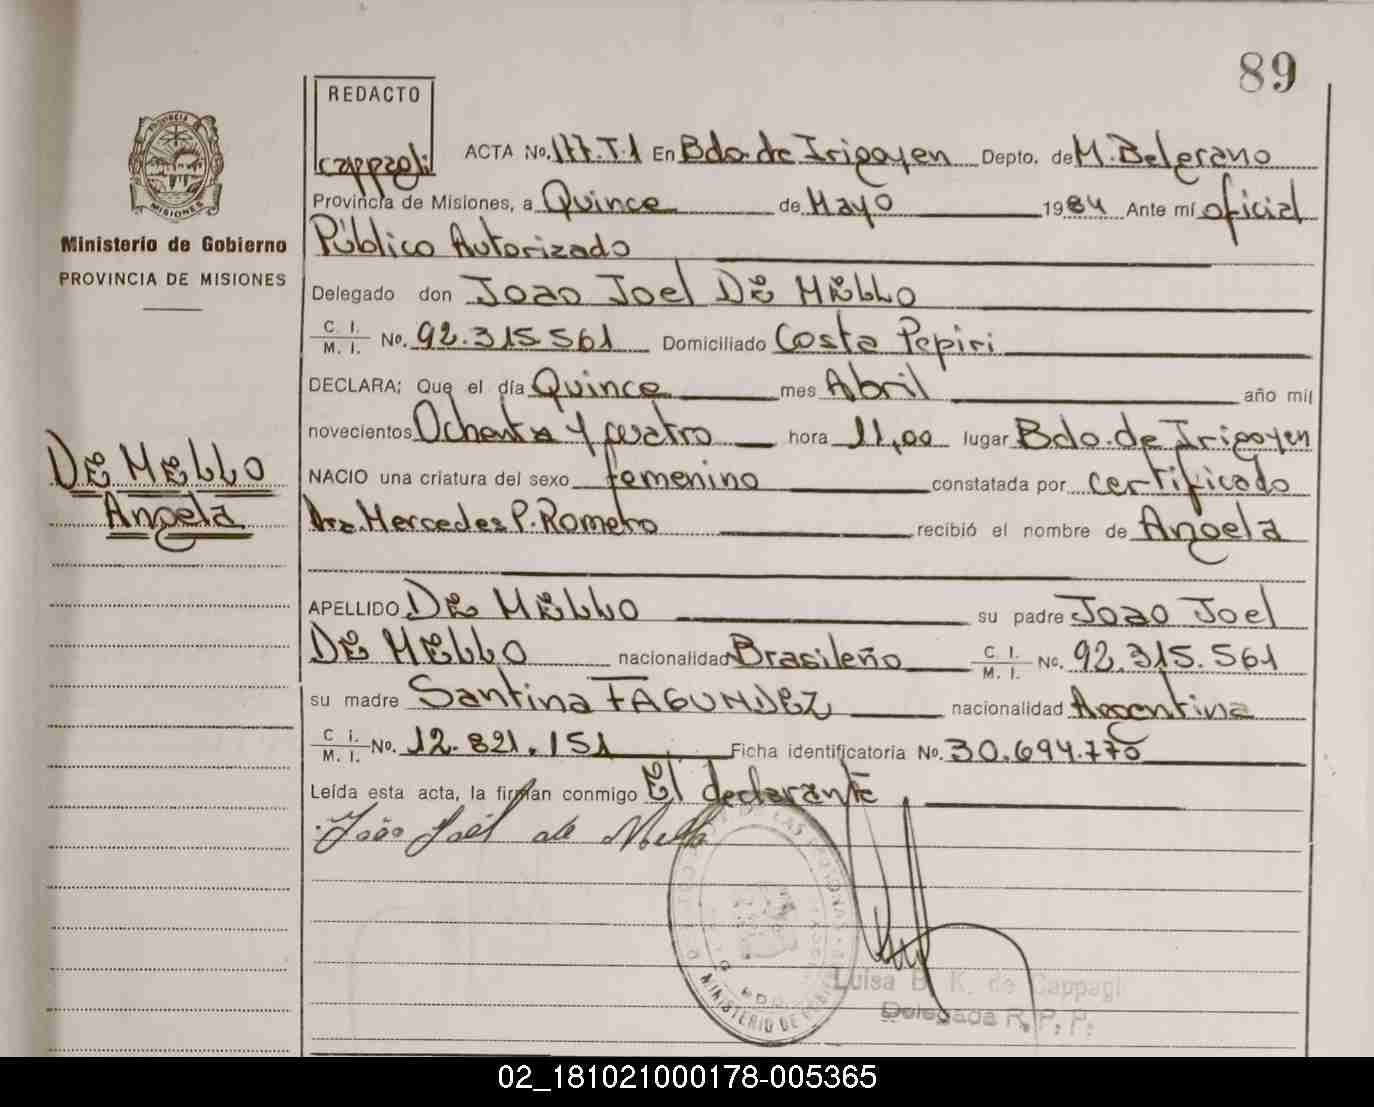 89
REDACTO
Cappagli
ACTA No. 177.T.1 En Bdo. de Irigoyen Depto. de M. Belgrano
Provincia de Misiones, a Quince de Mayo 1984 Ante mí oficial
Público Autorizado
Delegado don Joao Joel DE MELLO
C. I.
M. I. No. 92.315.561 Domiciliado Costa Pepiri
DECLARA; Que el día Quince mes Abril año mil
novecientos Ochenta y cuatro hora 11,00 lugar Bdo. de Irigoyen
NACIO una criatura del sexo femenino constatada por certificado
Dra. Mercedes P. Romero recibió el nombre de Angela
APELLIDO DE MELLO su padre Joao Joel
DE MELLO nacionalidad Brasileño C. I.
M. I. No. 92.315.561
su madre Santina FAGUNDEZ nacionalidad Argentina
C. I.
M. I. No. 12.821.151 Ficha identificatoria No. 30.694.770
Leída esta acta, la firman conmigo El declarante
João Joél de Mello
PROVINCIA DE
MISIONES
Ministerio de Gobierno
PROVINCIA DE MISIONES
DE MELLO
Angela
DE LAS PERSONAS
MINISTERIO DE GOBIERNO
Luisa B. K. de Cappagli
Delegada R. P. P.
02_181021000178-005365